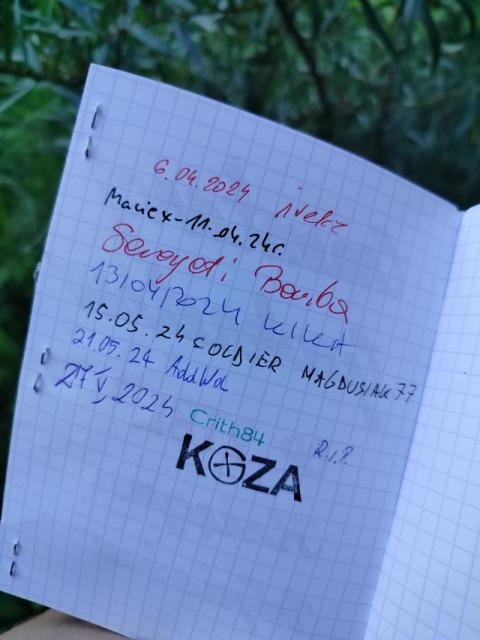 6.04.2024
Maciex-11.04.24r.
Bomba
13/04/2024 KIKA
15.05.24 SOLDIER MAGDUSIAK77
21.05.24 AddWd
27 V 2024
Crith84 R.I.P.
KOZA